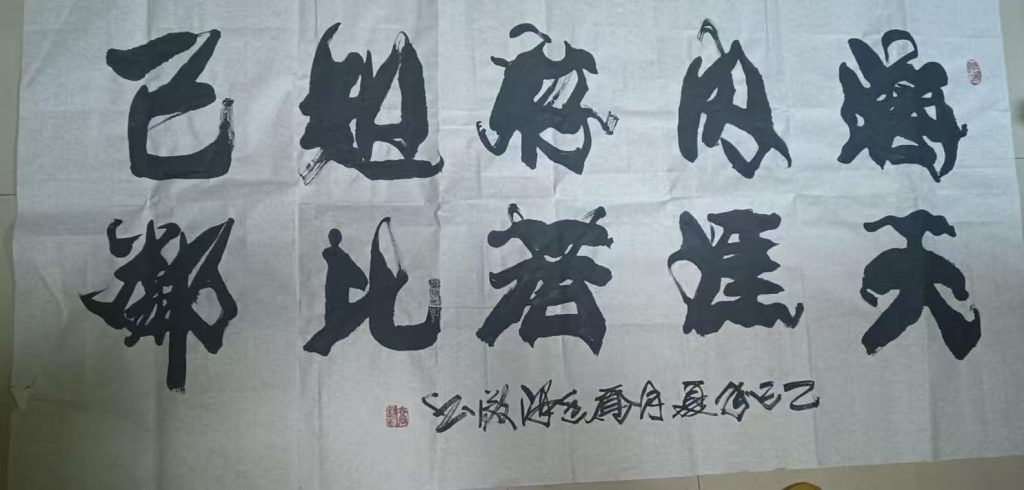 海内存知己
天涯若比鄰
乙巳年夏月